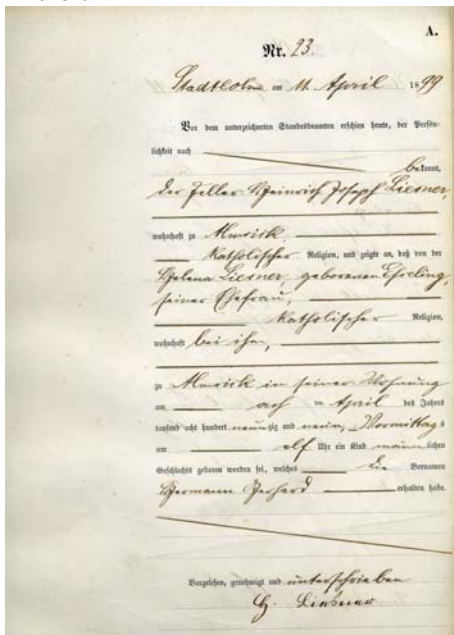 A.
Nr. 23.
Stadtlohn am 11. April 1899
Vor dem unterzeichneten Standesbeamten erschien heute, der Persön-
lichkeit nach bekannt,
der Zeller Heinrich Joseph Liesner,
wohnhaft zu Almsick,
katholischer Religion, und zeigte an, daß von der
Helena Liesner, geborenen Ehseling,
seiner Ehefrau,
katholischer Religion,
wohnhaft bei ihm,
zu Almsick in seiner Wohnung
am April des Jahres
tausend acht hundert neunzig und neun, Vormittags
um elf Uhr ein Kind männlichen
Geschlechts geboren worden sei, welches die Vornamen
Hermann Gerhard erhalten habe.
Vorgelesen, genehmigt und unterschrieben
H. Liesner